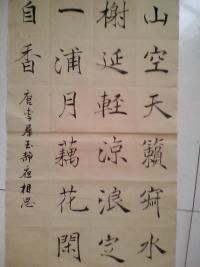 山空天籟寂水
榭延輕涼浪定
一浦月藕花閑
自香
唐李羣玉靜夜相思